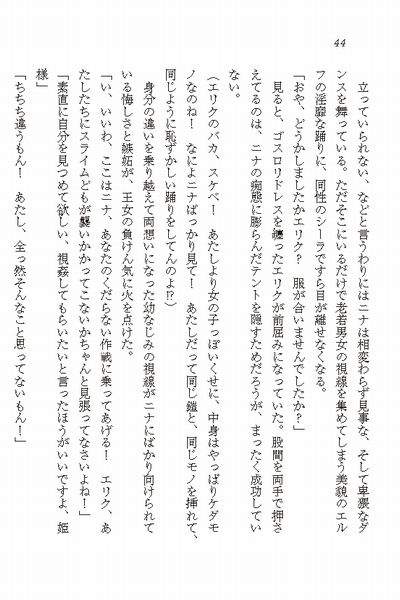 44
　立っていられない、などと言うわりにはニナは相変わらず見事な、そして卑猥なダ
ンスを舞っている。ただそこにいるだけで老若男女の視線を集めてしまう美貌のエル
フの淫靡な踊りに、同性のシーラですら目が離せなくなる。
「おや、どうかしましたかエリク？　服が合いませんでしたか？」
　見ると、ゴスロリドレスを纏ったエリクが前屈みになっていた。股間を両手で押さ
えてるのは、ニナの痴態に膨らんだテントを隠すためだろうが、まったく成功してい
ない。
（エリクのバカ、スケベ！　あたしより女の子っぽいくせに、中身はやっぱりケダモ
ノなのね！　なによニナばっかり見て！　あたしだって同じ鎧と、同じモノを挿れて、
同じように恥ずかしい踊りをしてんのよ!?）
　身分の違いを乗り越えて両想いになった幼なじみの視線がニナにばかり向けられて
いる悔しさと嫉妬が、王女の負けん気に火を点けた。
「い、いいわ、ここはニナ、あなたのくだらない作戦に乗ってあげる！　エリク、あ
たしたちにスライムどもが襲いかかってこないかちゃんと見張ってなさいよね！」
「素直に自分を見つめて欲しい、視姦してもらいたいと言ったほうがいいですよ、姫
様」
「ちちち違うもん！　あたし、全っ然そんなこと思ってないもん！」